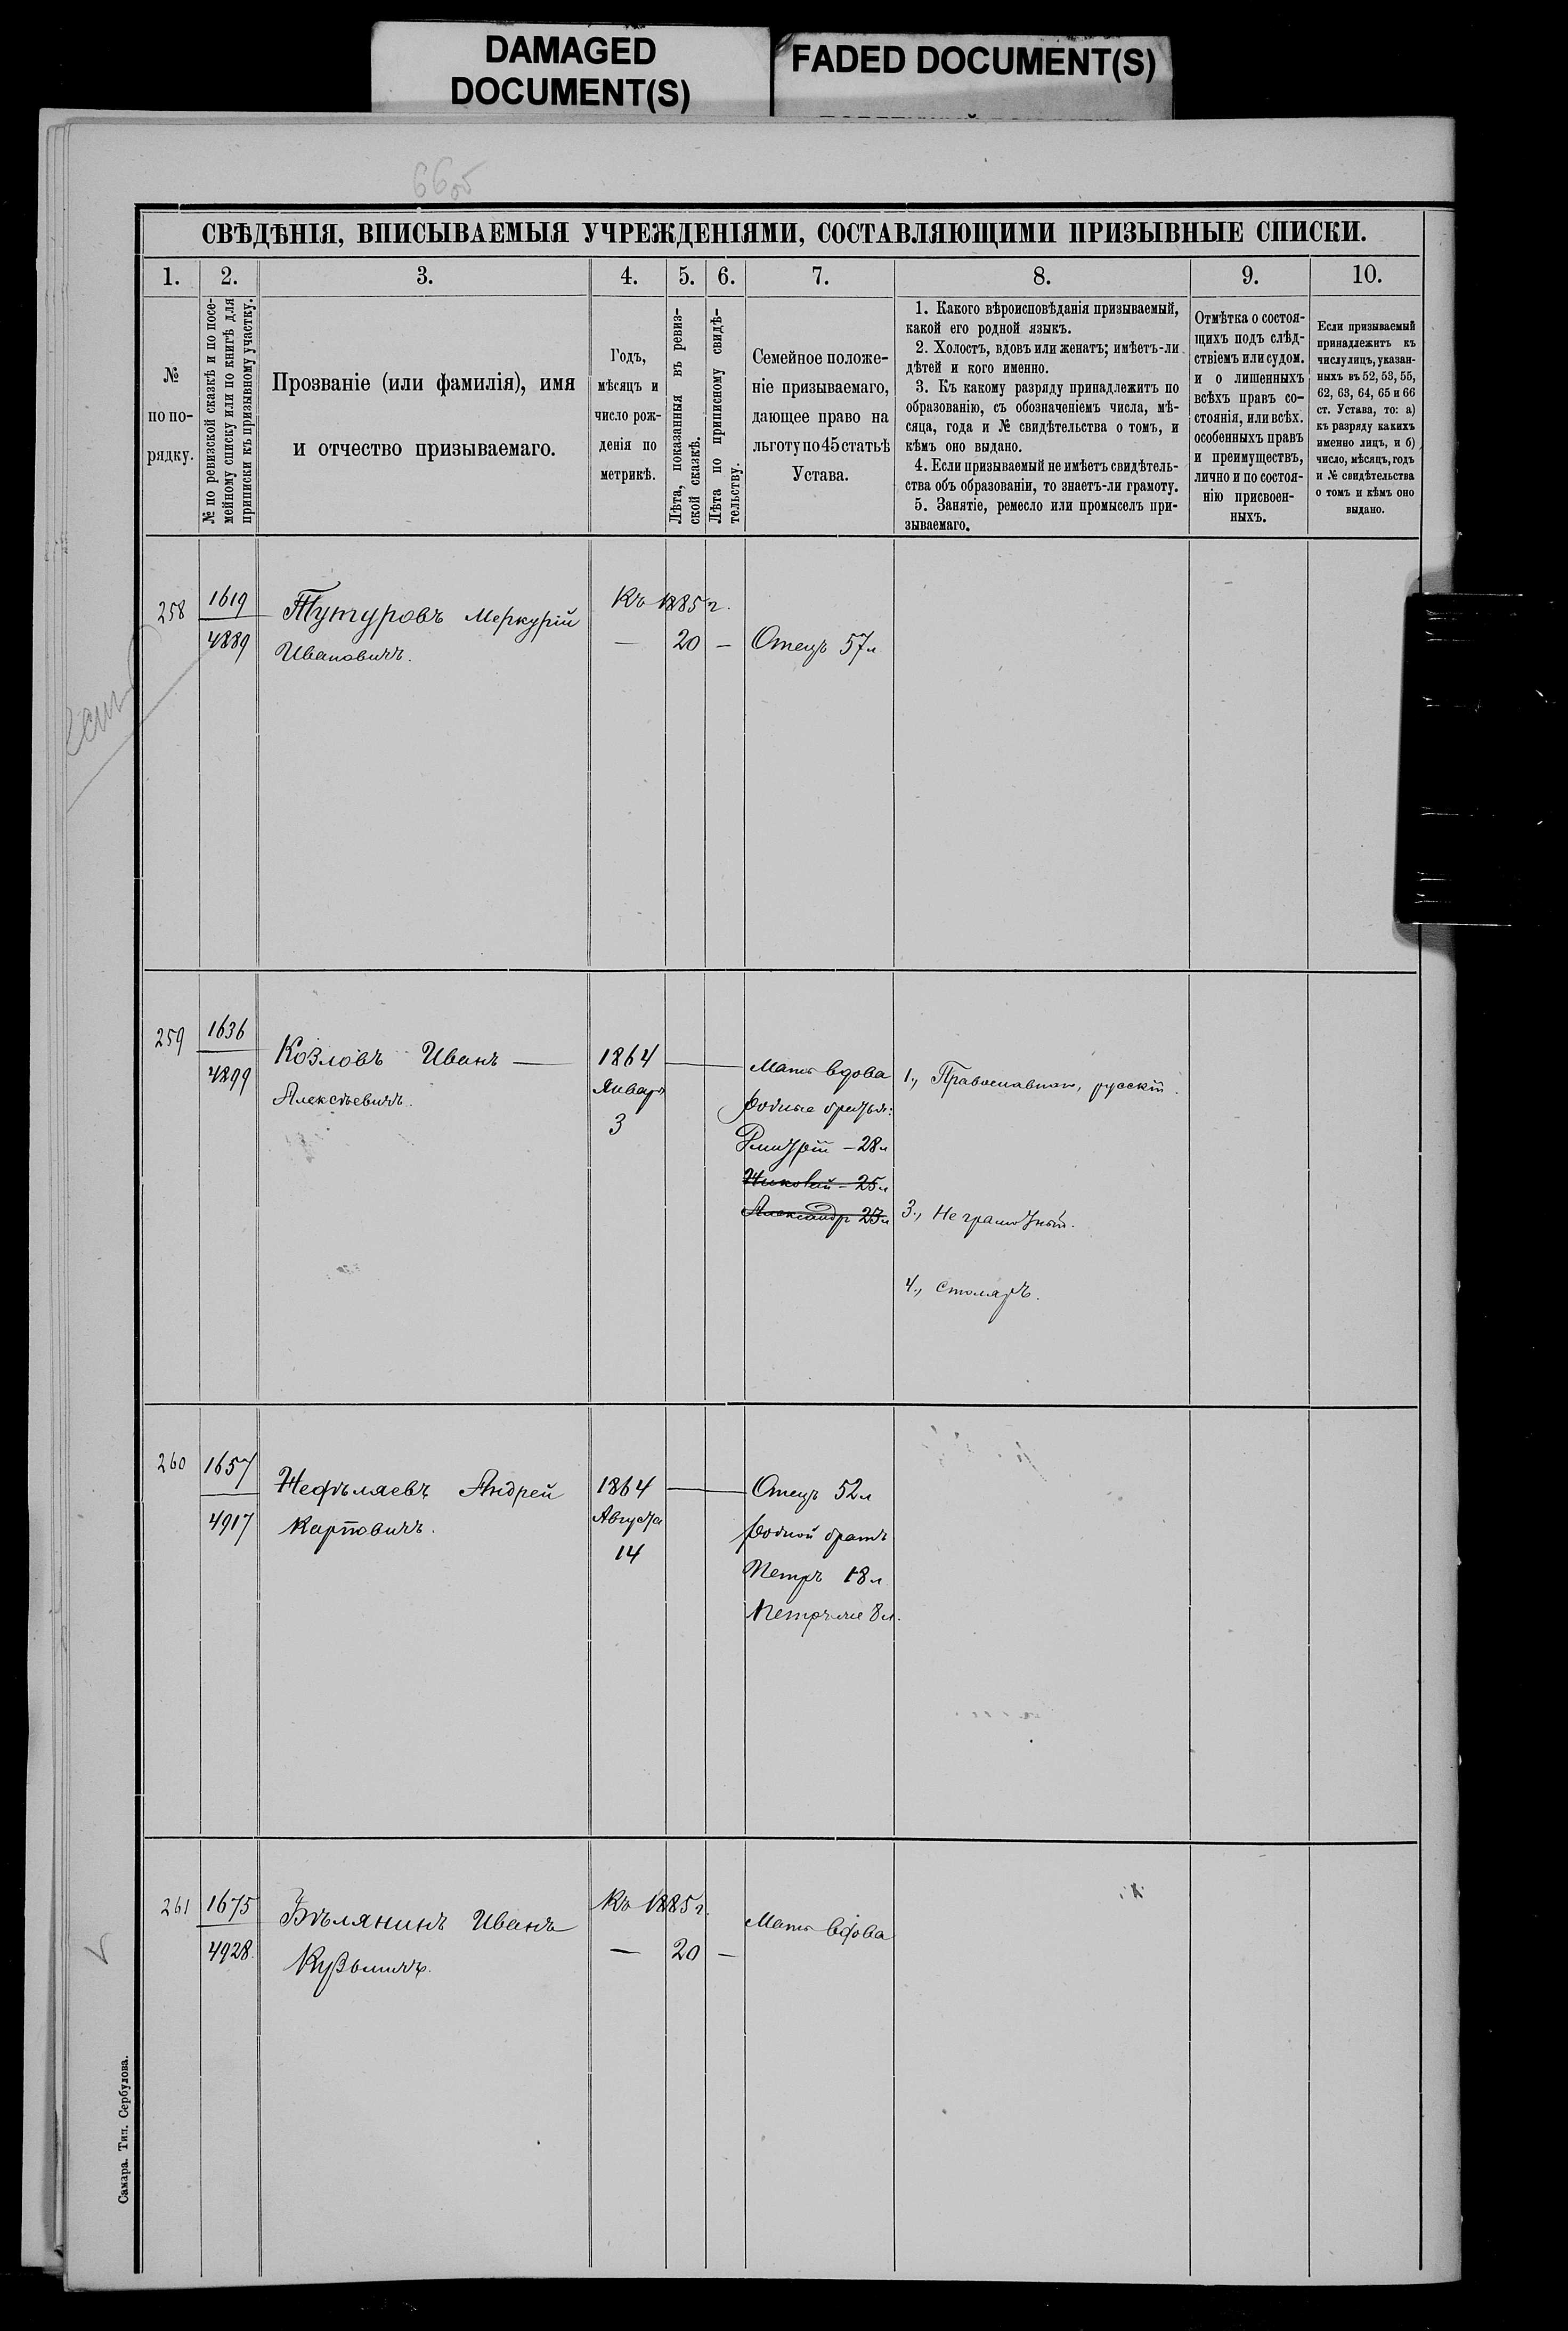 DAMAGED
DOCUMENT(S)
FADED DOCUMENT(S)
66об
СВѢДѢНІЯ, ВПИСЫВАЕМЫЯ УЧРЕЖДЕНІЯМИ, СОСТАВЛЯЮЩИМИ ПРИЗЫВНЫЕ СПИСКИ.
1.
2.
3.
4.
5.
6.
7.
8.
9.
10.
№
по по-
рядку.
№ по ревизской сказкѣ и по посе-
мейному списку или по книгѣ для
приписки къ призывному участку.
Прозваніе (или фамилія), имя
и отчество призываемаго.
Годъ,
мѣсяцъ и
число рож-
денія по
метрикѣ.
Лѣта, показанныя въ ревиз-
ской сказкѣ.
Лѣта по приписному свидѣ-
тельству.
Семейное положе-
ніе призываемаго,
дающее право на
льготу по 45 статьѣ
Устава.
1. Какого вѣроисповѣданія призываемый,
какой его родной языкъ.
2. Холостъ, вдовъ или женатъ; имѣетъ-ли
дѣтей и кого именно.
3. Къ какому разряду принадлежитъ по
образованію, съ обозначеніемъ числа, мѣ-
сяца, года и № свидѣтельства о томъ, и
кѣмъ оно выдано.
4. Если призываемый не имѣетъ свидѣтель-
ства объ образованіи, то знаетъ-ли грамоту.
5. Занятіе, ремесло или промыселъ при-
зываемаго.
Отмѣтка о состоя-
щихъ подъ слѣд-
ствіемъ или судом.
и о лишенныхъ
всѣхъ правъ со-
стоянія, или всѣх.
особенныхъ правъ
и преимуществъ,
лично и по состоя-
нію присвоен-
ныхъ.
Если призываемый
принадлежитъ къ
числу лицъ, указан-
ныхъ въ 52, 53, 55,
62, 63, 64, 65 и 66
ст. Устава, то: а)
къ разряду какихъ
именно лицъ, и б)
число, мѣсяцъ, годъ
и № свидѣтельства
о томъ и кѣмъ оно
выдано.
258
1619
4889
Тутуровъ Меркурій
Ивановичъ.
Къ 1885 г.
— 20 —
Отецъ 57 л
259
1636
4899
Козловъ Иванъ —
Алексѣевичъ.
1864
Январь
3
Мать вдова
родные братья:
Дмитрій – 28 л
Николай – 25 л
Александр 23 л
1., Православнаго, русскій.
3., Неграмотный.
4., Столяръ.
260
1657
4917
Нефѣляевъ Андрей
Карповичъ.
1864
Августа
14
Отецъ 52 л
родной братъ
Петръ 18 л
261
1675
4928.
Бѣлянинъ Иванъ
Кузьмичъ.
Къ 1885 г.
— 20 —
Мать вдова
Самара. Тип. Сербулова.